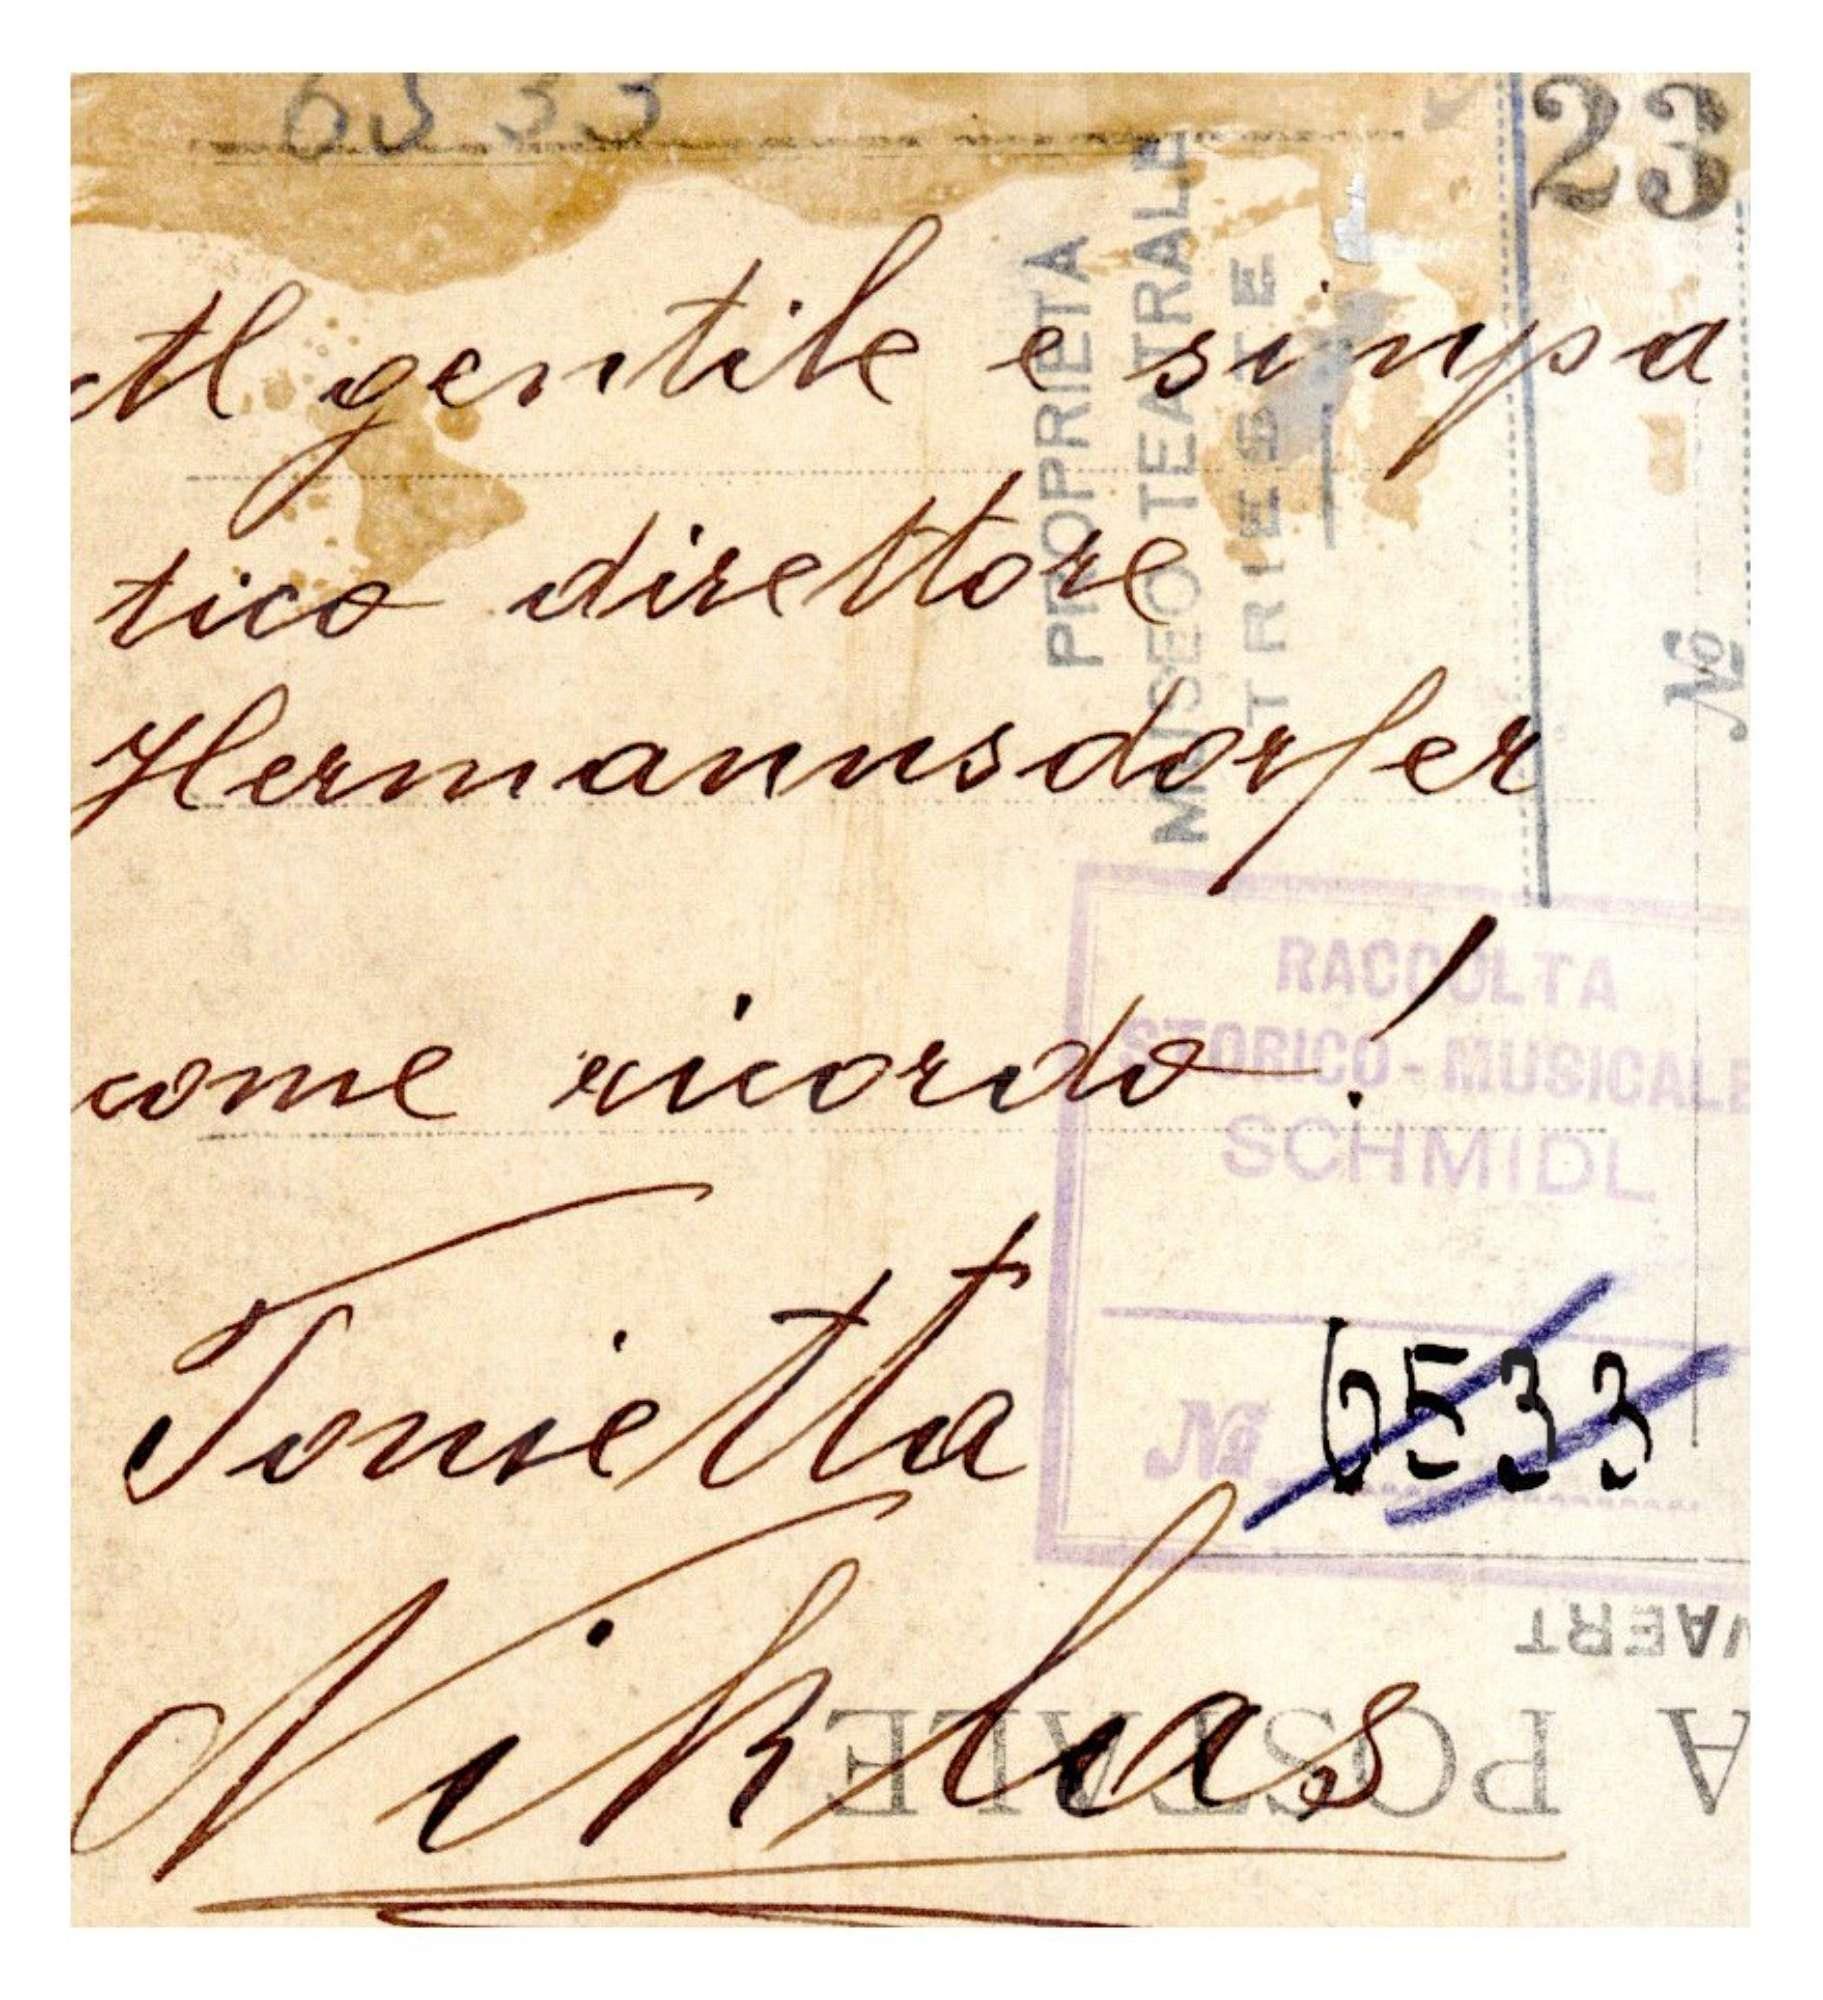 6533
23
Al gentile e simpa
tico direttore
Hermannsdorfer
come ricordo!
Tonietta
Niklas
PROPRIETA
MUSEO TEATRALE
TRIESTE
No
RACCOLTA
STORICO-MUSICALE
SCHMIDL
No 6533
VAERT
A POSTALE